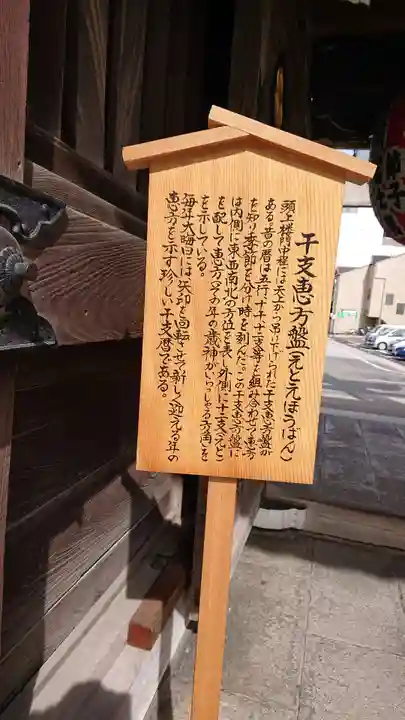 干支恵方盤(えとえほうばん)
頭上楼門中程には天上から吊り下げられた干支恵方盤が
ある。昔の暦は五行、十干、十二支等を組み合わせて恵方
を知り季節を分け時を刻んだ。この干支恵方盤に
は内側に東西南北の方位を表し外側に十二支(えと)
を配して恵方(その年の歳神がいらっしゃる方角)を
を示している。
毎年大晦日には矢印を回転させて新しく迎える年の
恵方を示す珍しい干支暦である。